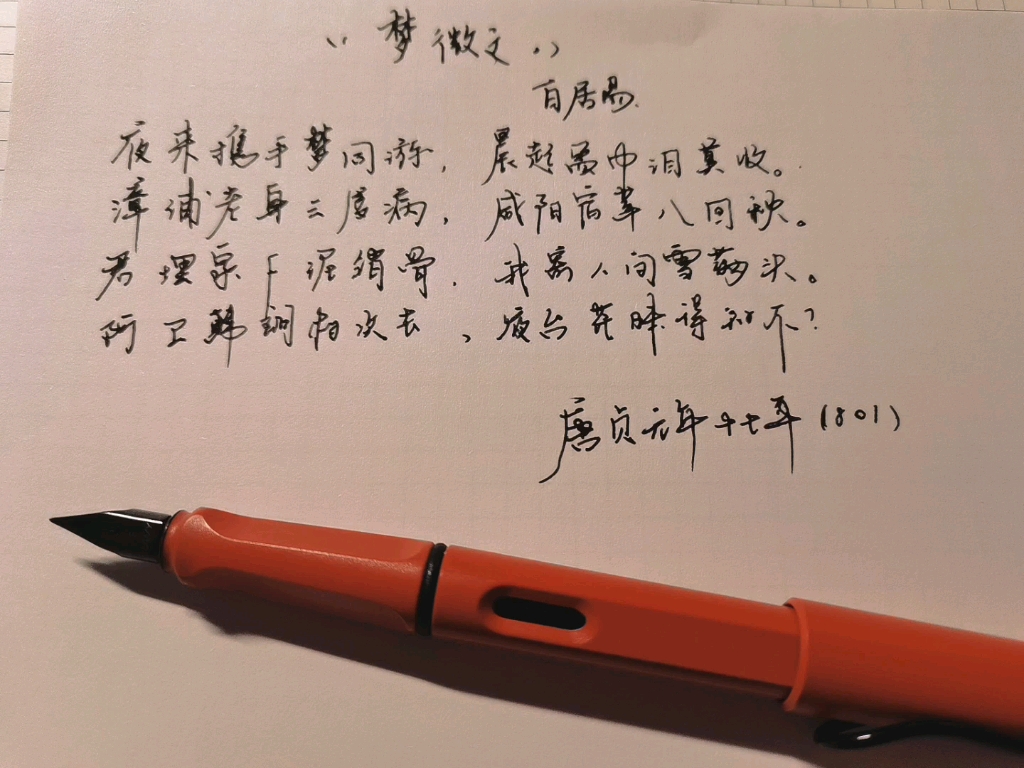 “梦微文”
白居易
夜来携手梦同游，晨起盈巾泪莫收。
漳浦老身三度病，咸阳宿草八回秋。
君埋泉下泥销骨，我寄人间雪满头。
阿卫韩郎相次去，夜台茫昧得知不？
唐贞元年十七年(801)